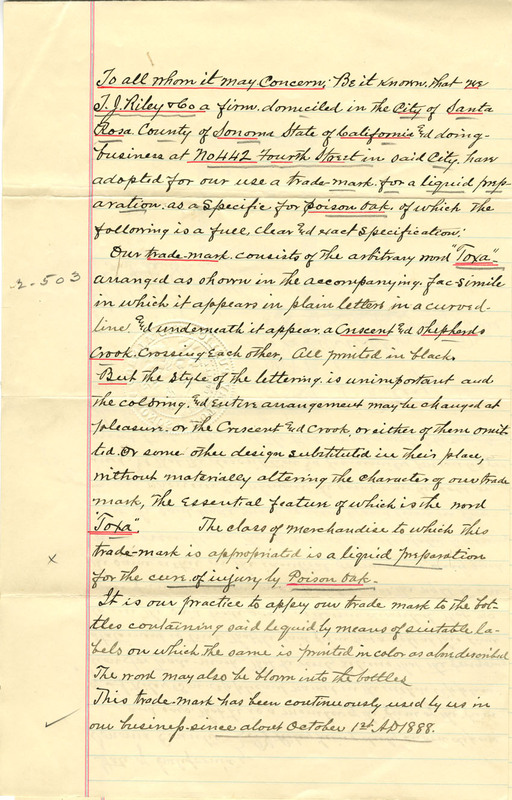 To all whom it may Concern; Be it Known, that we
T. J. Riley & Co a firm domiciled in the City of Santa
Rosa County of Sonoma State of California and doing
business at No 442 Fourth Street in said City, have
adopted for our use a trade-mark for a liquid prep-
aration as a Specific for poison oak of which the
following is a full, clear and exact Specification:
Our trade-mark consists of the arbitrary word "Toxa"
2.503
arranged as shown in the accompanying fac-simile
in which it appears in plain letters in a curved
line and underneath it appear a Crescent and shepherds
Crook, Crossing each other, All printed in black.
But the style of the lettering is unimportant and
the coloring, and entire arrangement may be changed at
pleasure or the Crescent and Crook, or either of them omit-
ted or some other design substituted in their place,
without materially altering the character of our trade
mark, the essential feature of which is the word
"Toxa" The class of merchandise to which this
x
trade-mark is appropriated is a liquid preparation
for the cure of injury by Poison Oak.
It is our practice to apply our trade mark to the bot-
tles containing said liquid by means of suitable la-
bels on which the same is printed in color as above described
The word may also be blown into the bottles
This trade-mark has been continuously used by us in
our business since about October 1st A.D 1888.